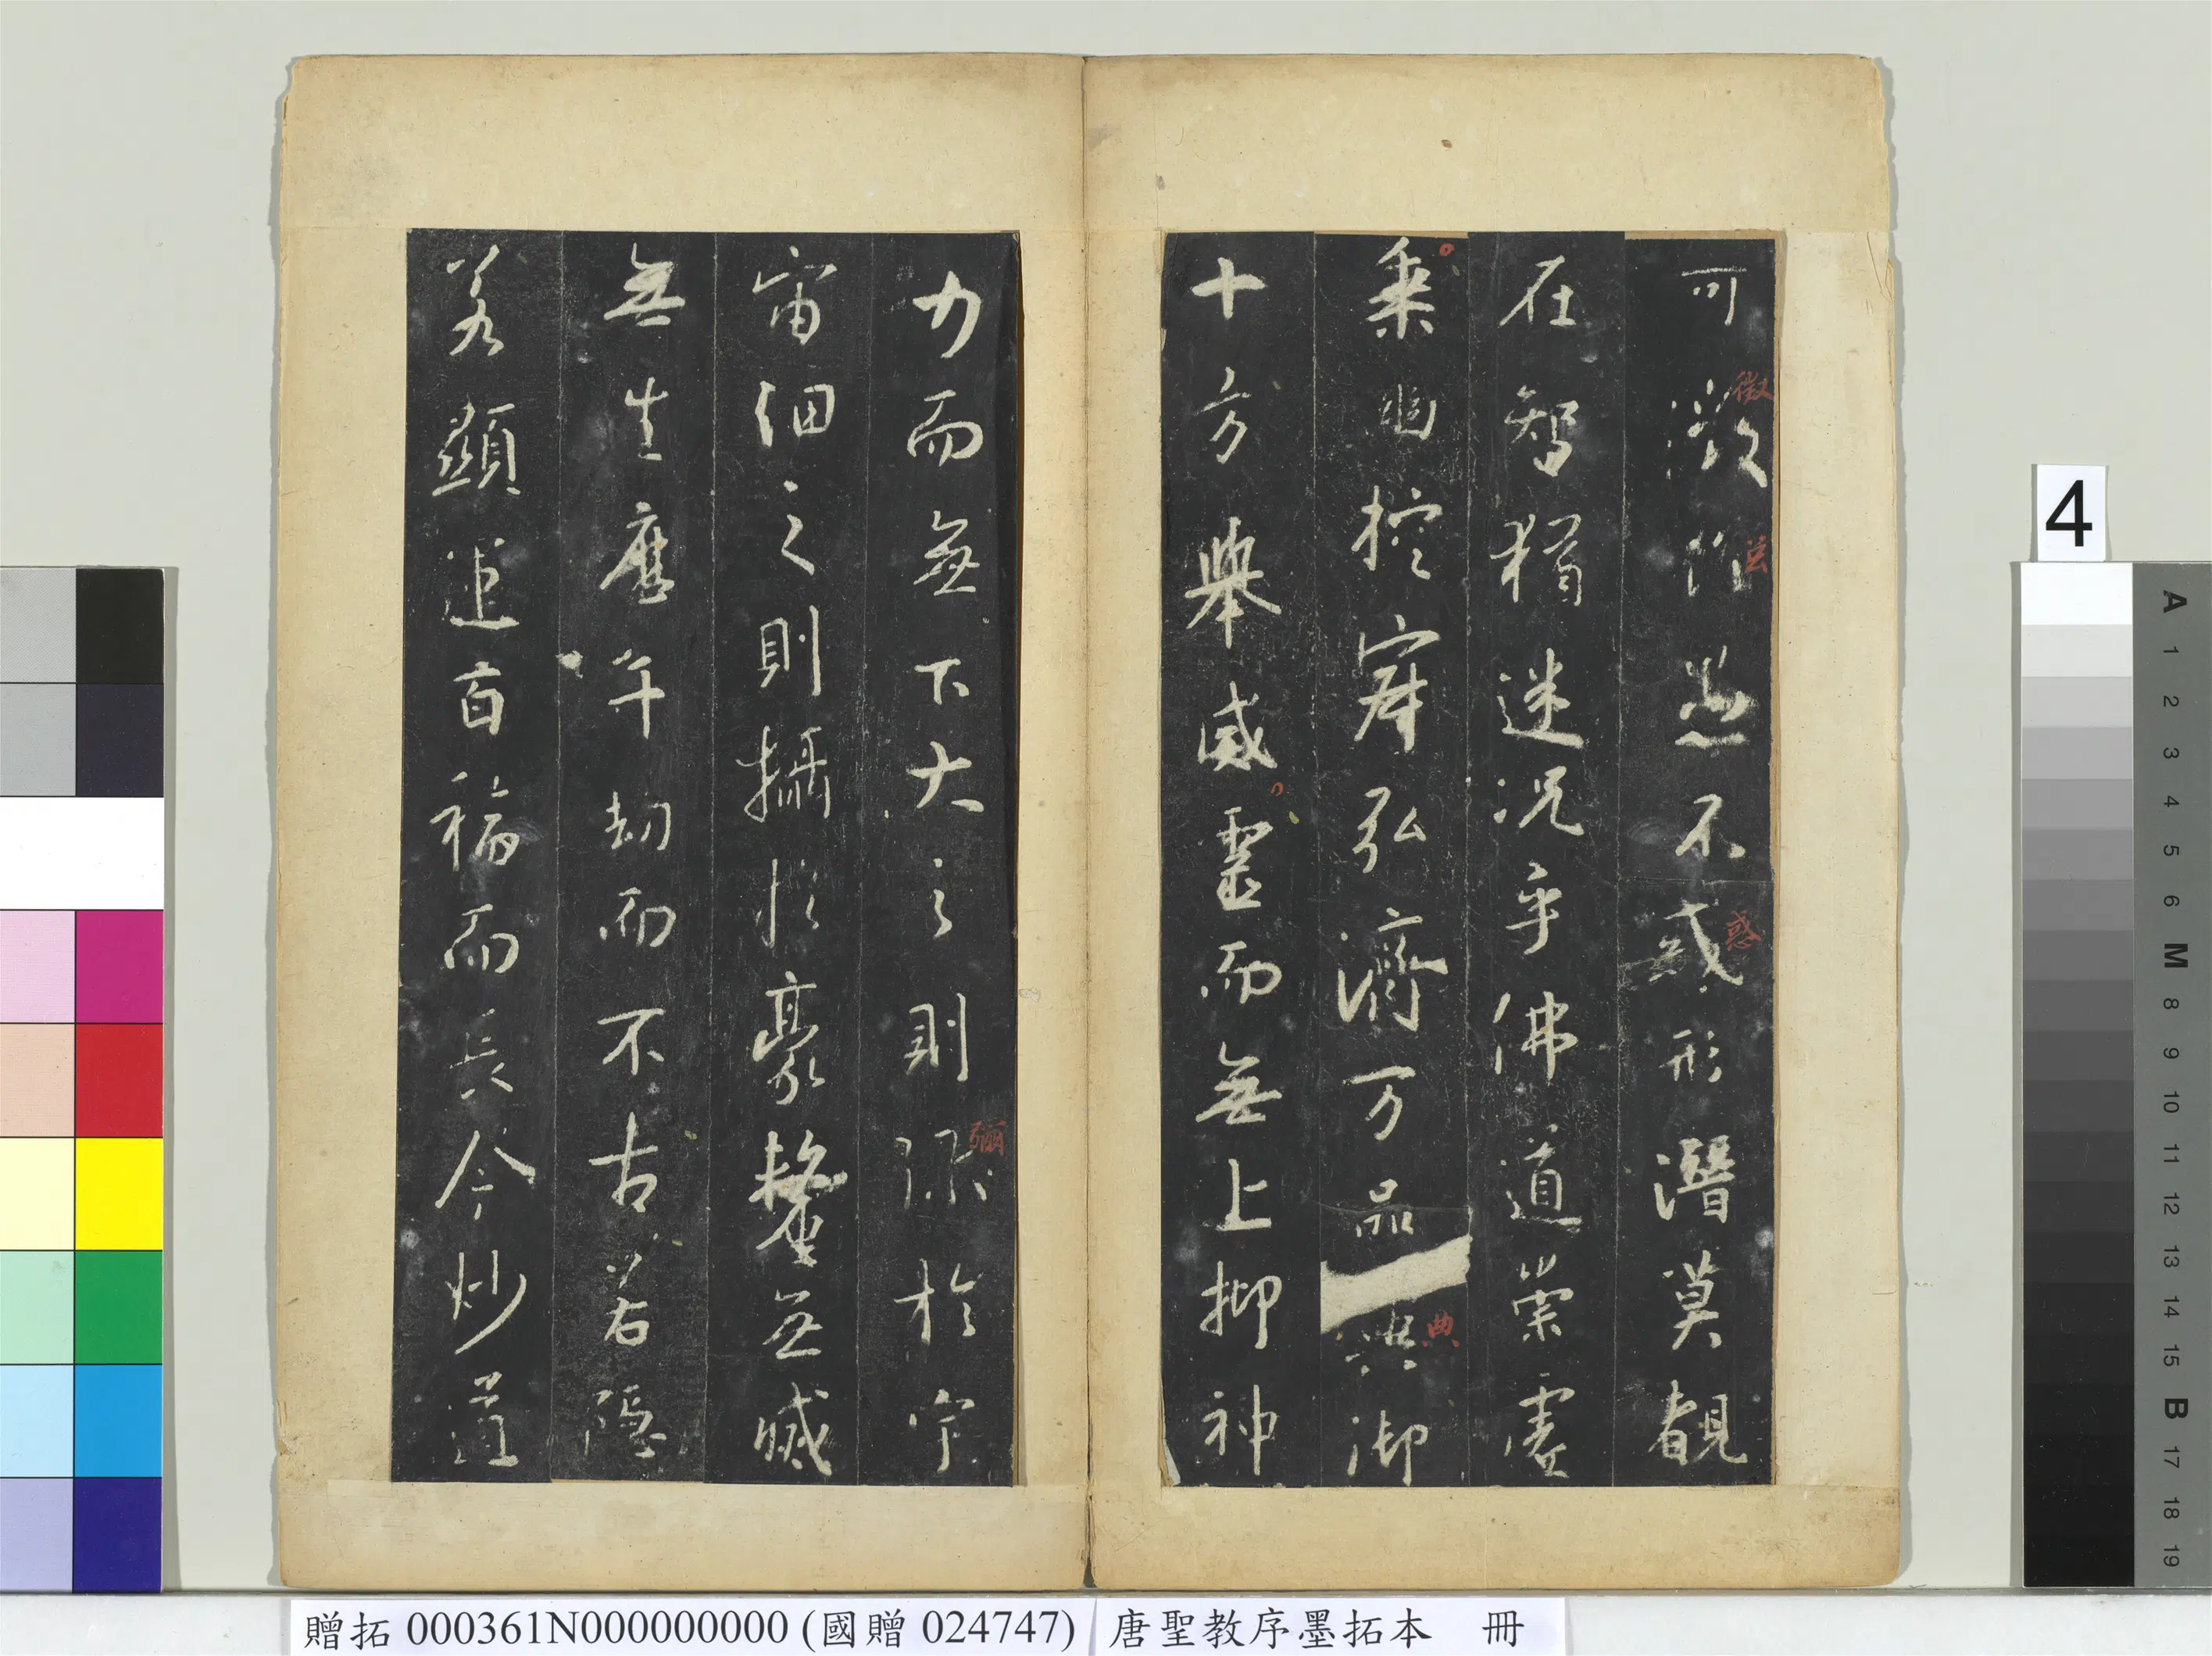 可徵雖愚不惑形潛莫覩
在智猶迷况乎佛道崇虛
乘幽控寂弘濟万品典御
十方舉威靈而無上抑神
力而無下大之則彌於宇
宙細之則攝於豪釐無滅
無生歷千劫而不古若隱
若顯運百福而長今妙道
徵
惑
典
彌
4
A 1 2 3 4 5 6 M 8 9 10 11 12 13 14 15 B 17 18 19
贈拓 000361N000000000 (國贈 024747)
唐聖教序墨拓本 冊